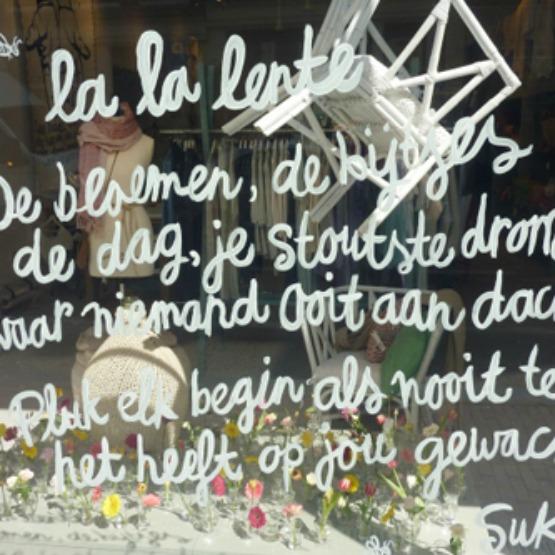 la la lente
De bloemen, de bijtjes
de dag, je stoutste drom
waar niemand ooit aan dach
Pluk elk begin als nooit te
het heeft op jou gewac
Suk